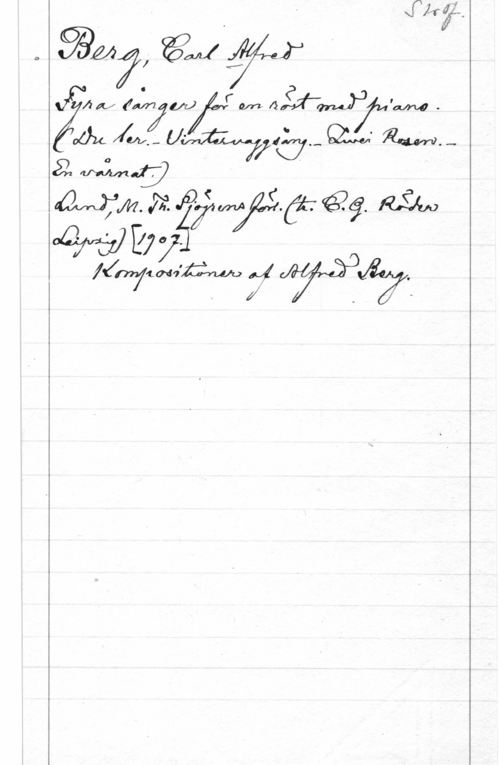 Berg, Carl Alfred
Fyra sånger för en röst med piano.
(Du ler. - Vintervaggsång. - Zwei Rosen. -
En vårnat.)
Lund, M. Th. Sjögrens förl. (tr. C. G. Röder
Leipzig) [1907.]
Kompositioner af Alfred Berg.